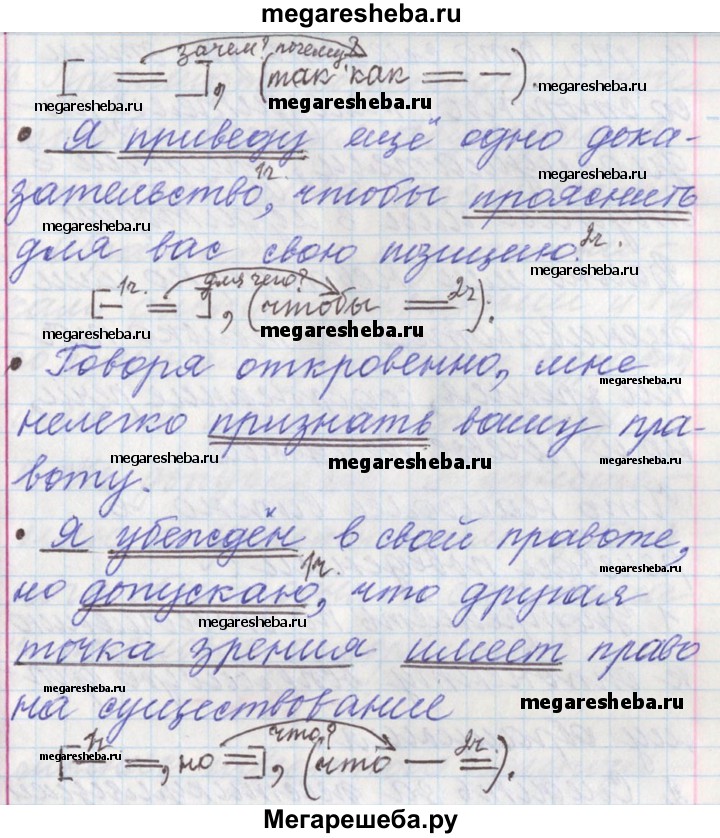 megaresheba.ru
зачем? почему?
[ = ], (так как = –).
megaresheba.ru megaresheba.ru megaresheba.ru
• Я приведу ещё одно дока-
megaresheba.ru
1г.
зательство, чтобы прояснить
megaresheba.ru megaresheba.ru
для вас свою позицию. 2г.
megaresheba.ru
1г. для чего? 2г.
[– =], (чтобы =).
megaresheba.ru megaresheba.ru
• Говоря откровенно, мне
megaresheba.ru
нелегко признать вашу пра-
megaresheba.ru megaresheba.ru megaresheba.ru
воту.
• Я убеждён в своей правоте,
megaresheba.ru
1г.
но допускаю, что другая
megaresheba.ru
точка зрения имеет право
megaresheba.ru megaresheba.ru
на существование
1г. что? 2г.
[– =, но =], (что – =).
megaresheba.ru megaresheba.ru
Мегарешеба.ру